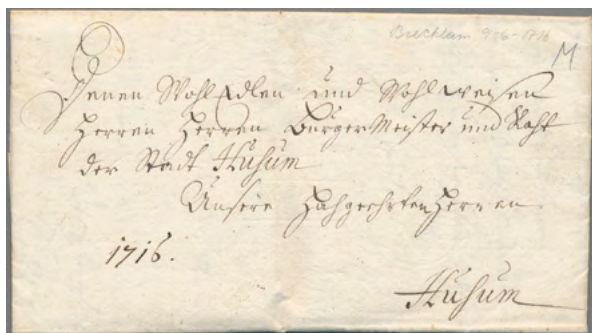 Breklum 9-6-1716
M
Denen Wohl Edlen und Wohlweisen
Herren Herren BürgerMeister und Raht
der Stadt Husum
Unsere Hochgeehrten Herren
1716.
Husum